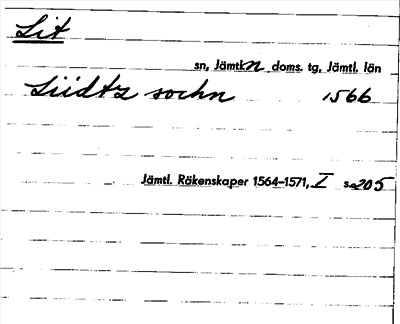 Lit
sn, Jämtkn doms. tg, Jämtl. län
Liidtz sochn 1566
Jämtl. Räkenskaper 1564–1571, I s. 205